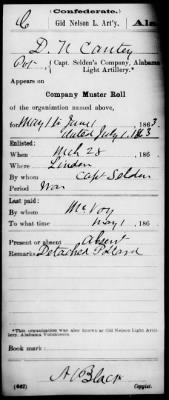 Confederate.
C Gid Nelson L. Art'y. Ala
D. N Cantey
Pvt Capt. Selden's Company, Alabama
Light Artillery.*
Appears on
Company Muster Roll
of the organization named above,
for May 1 to June 1, 1863.
dated July 1, 1863
Enlisted:
When Mch 28, 186 .
Where Linden
By whom Capt Selden
Period War
Last paid:
By whom McVoy
To what time May 1, 186 .
Present or absent absent
Remarks Detached
*This organization was also known as Gid Nelson Light Artillery, Alabama Volunteers.
Book mark:
A C Black
(642) Copyist.